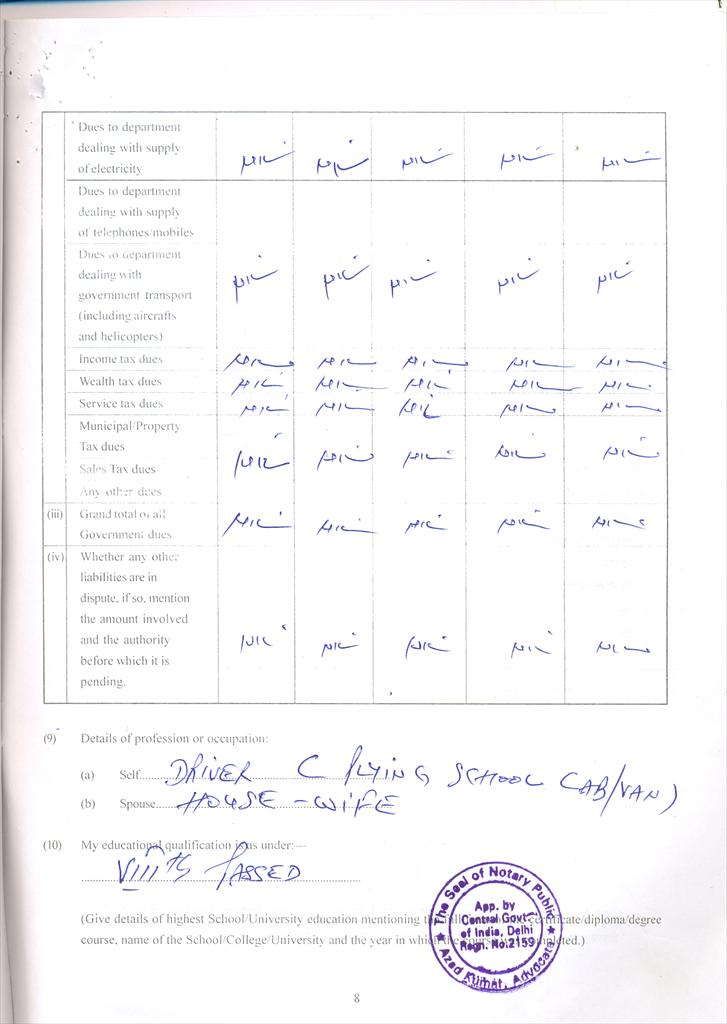 Dues to department
dealing with supply
of electricity NIL NIL NIL NIL NIL
Dues to department
dealing with supply
of telephones/mobiles
Dues to department
dealing with
government transport NIL NIL NIL NIL NIL
(including aircrafts
and helicopters)
Income tax dues NIL NIL NIL NIL NIL
Wealth tax dues NIL NIL NIL NIL NIL
Service tax dues NIL NIL NIL NIL NIL
Municipal/Property
Tax dues NIL NIL NIL NIL NIL
Sales Tax dues
Any other dues
(iii) Grand total of all NIL NIL NIL NIL NIL
Government dues
(iv) Whether any other
liabilities are in
dispute, if so, mention
the amount involved
and the authority NIL NIL NIL NIL NIL
before which it is
pending.
(9) Details of profession or occupation:
(a) Self DRIVER C PLYING SCHOOL CAB/VAN)
(b) Spouse HOUSE-WIFE
(10) My educational qualification is as under:—
VIIIth PASSED
(Give details of highest School/University education mentioning the full certificate/diploma/degree
course, name of the School/College/University and the year in which the course was completed.)
The Seal of Notary Public
App. by
Central Govt.
of India, Delhi
Regn. No.2159
Azad Kumar, Advocate
8